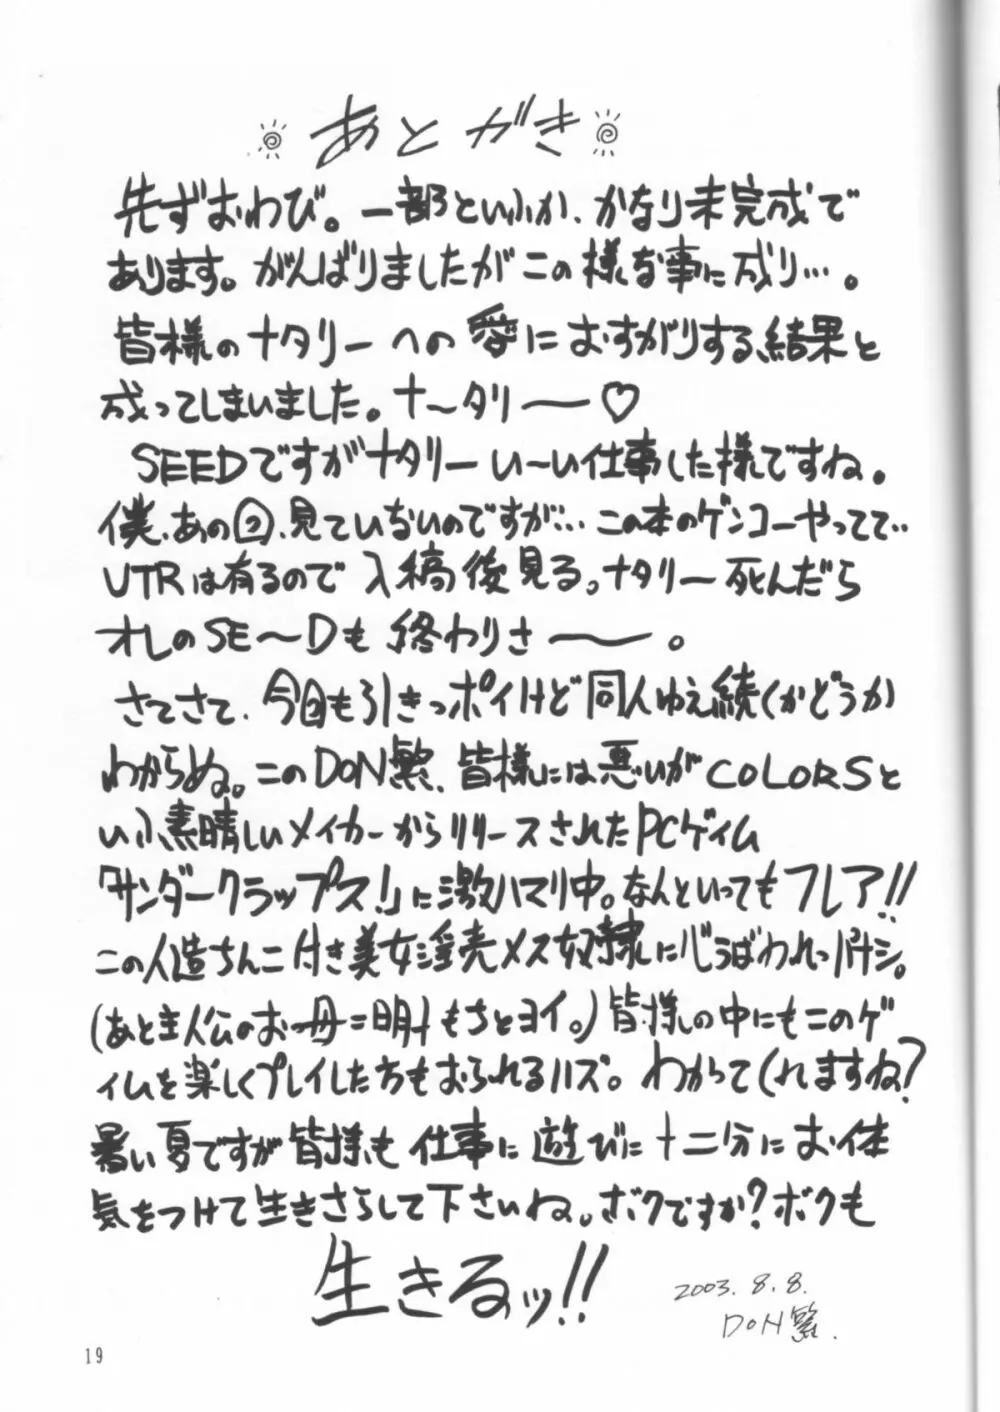 あとがき
先ずおわび。一部といふか、かなり未完成で
あります。がんばりましたがこの様な事に成り…。
皆様のナタリーへの愛におすがりする、結果と
成ってしまいました。ナ〜タリー♡
SEEDですがナタリーい〜い仕事した様ですね。
僕、あの回、見ていないのですが…この本のゲンコーやってて‥
VTRは有るので入稿後見る。ナタリー死んだら
オレのSE〜Dも終わりさ〜。
さてさて、今回も引きっポイけど同人ゆえ続くかどうか
わからぬ。このDoN繁、皆様には悪いがCOLORSと
いふ素晴しいメイカーからリリースされたPCゲイム
「サンダークラップス!」に激ハマリ中。なんといってもフレア!!
この人造ちんこ付き美女淫売メス奴隷に心うばわれっパナシ。
(あと主人公のお母ニ明サもちとヨイ。)皆様の中にもこのゲ
イムを楽しくプレイした方もおられるハズ。わかってくれますね?
暑い夏ですが皆様も仕事に遊びに十二分にお体
気をつけて生きさらして下さいね。ボクですか?ボクも
生きるッ!!
2003.8.8.
DoN繁.
19